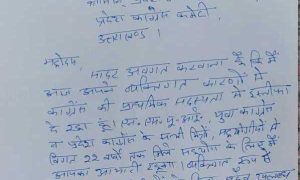 प्रदेश कांग्रेस कमेटी,
उत्तराखण्ड।
महोदय,
सादर अवगत करवाना है कि मैं
आज अपने व्यक्तिगत कारणों से
कांग्रेस की प्राथमिक सदस्यता से इस्तीफा
दे रहा हूँ। एन.एस.यू.आई., युवा कांग्रेस
व प्रदेश कांग्रेस के सभी मित्रों, सहयोगियों से
विगत 22 वर्षों तक मिले सहयोग के लिए मैं
आपका आभारी रहूंगा। व्यक्तिगत रूप से